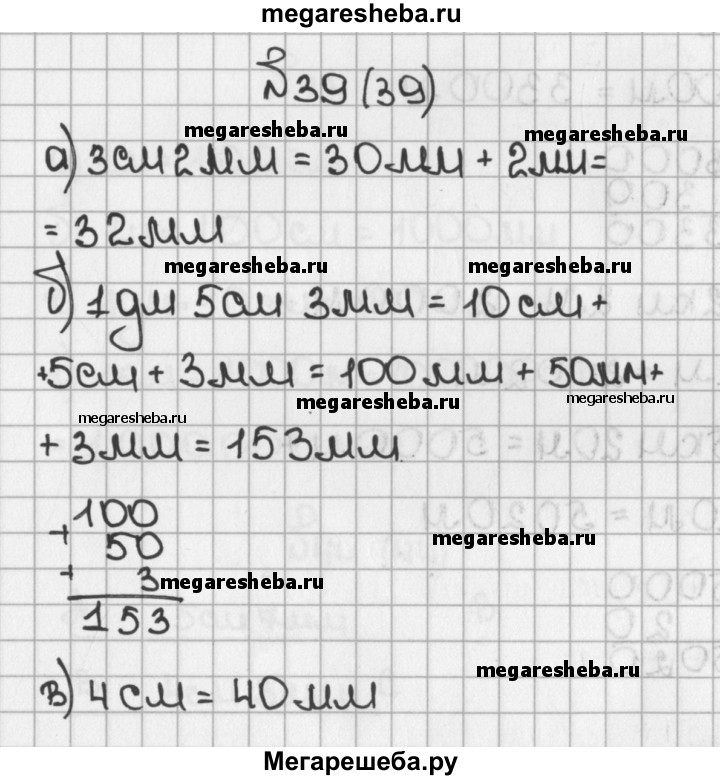 megaresheba.ru
№39 (39)
megaresheba.ru megaresheba.ru
а) 3см 2мм = 30мм + 2мм=
= 32мм
megaresheba.ru megaresheba.ru
б) 1дм 5см 3мм = 10см+
+5см + 3мм = 100мм + 50мм+
megaresheba.ru megaresheba.ru megaresheba.ru
+ 3мм = 153мм
+ 100
50
megaresheba.ru
+ 3
megaresheba.ru
153
megaresheba.ru
в) 4см = 40мм
Мегарешеба.ру